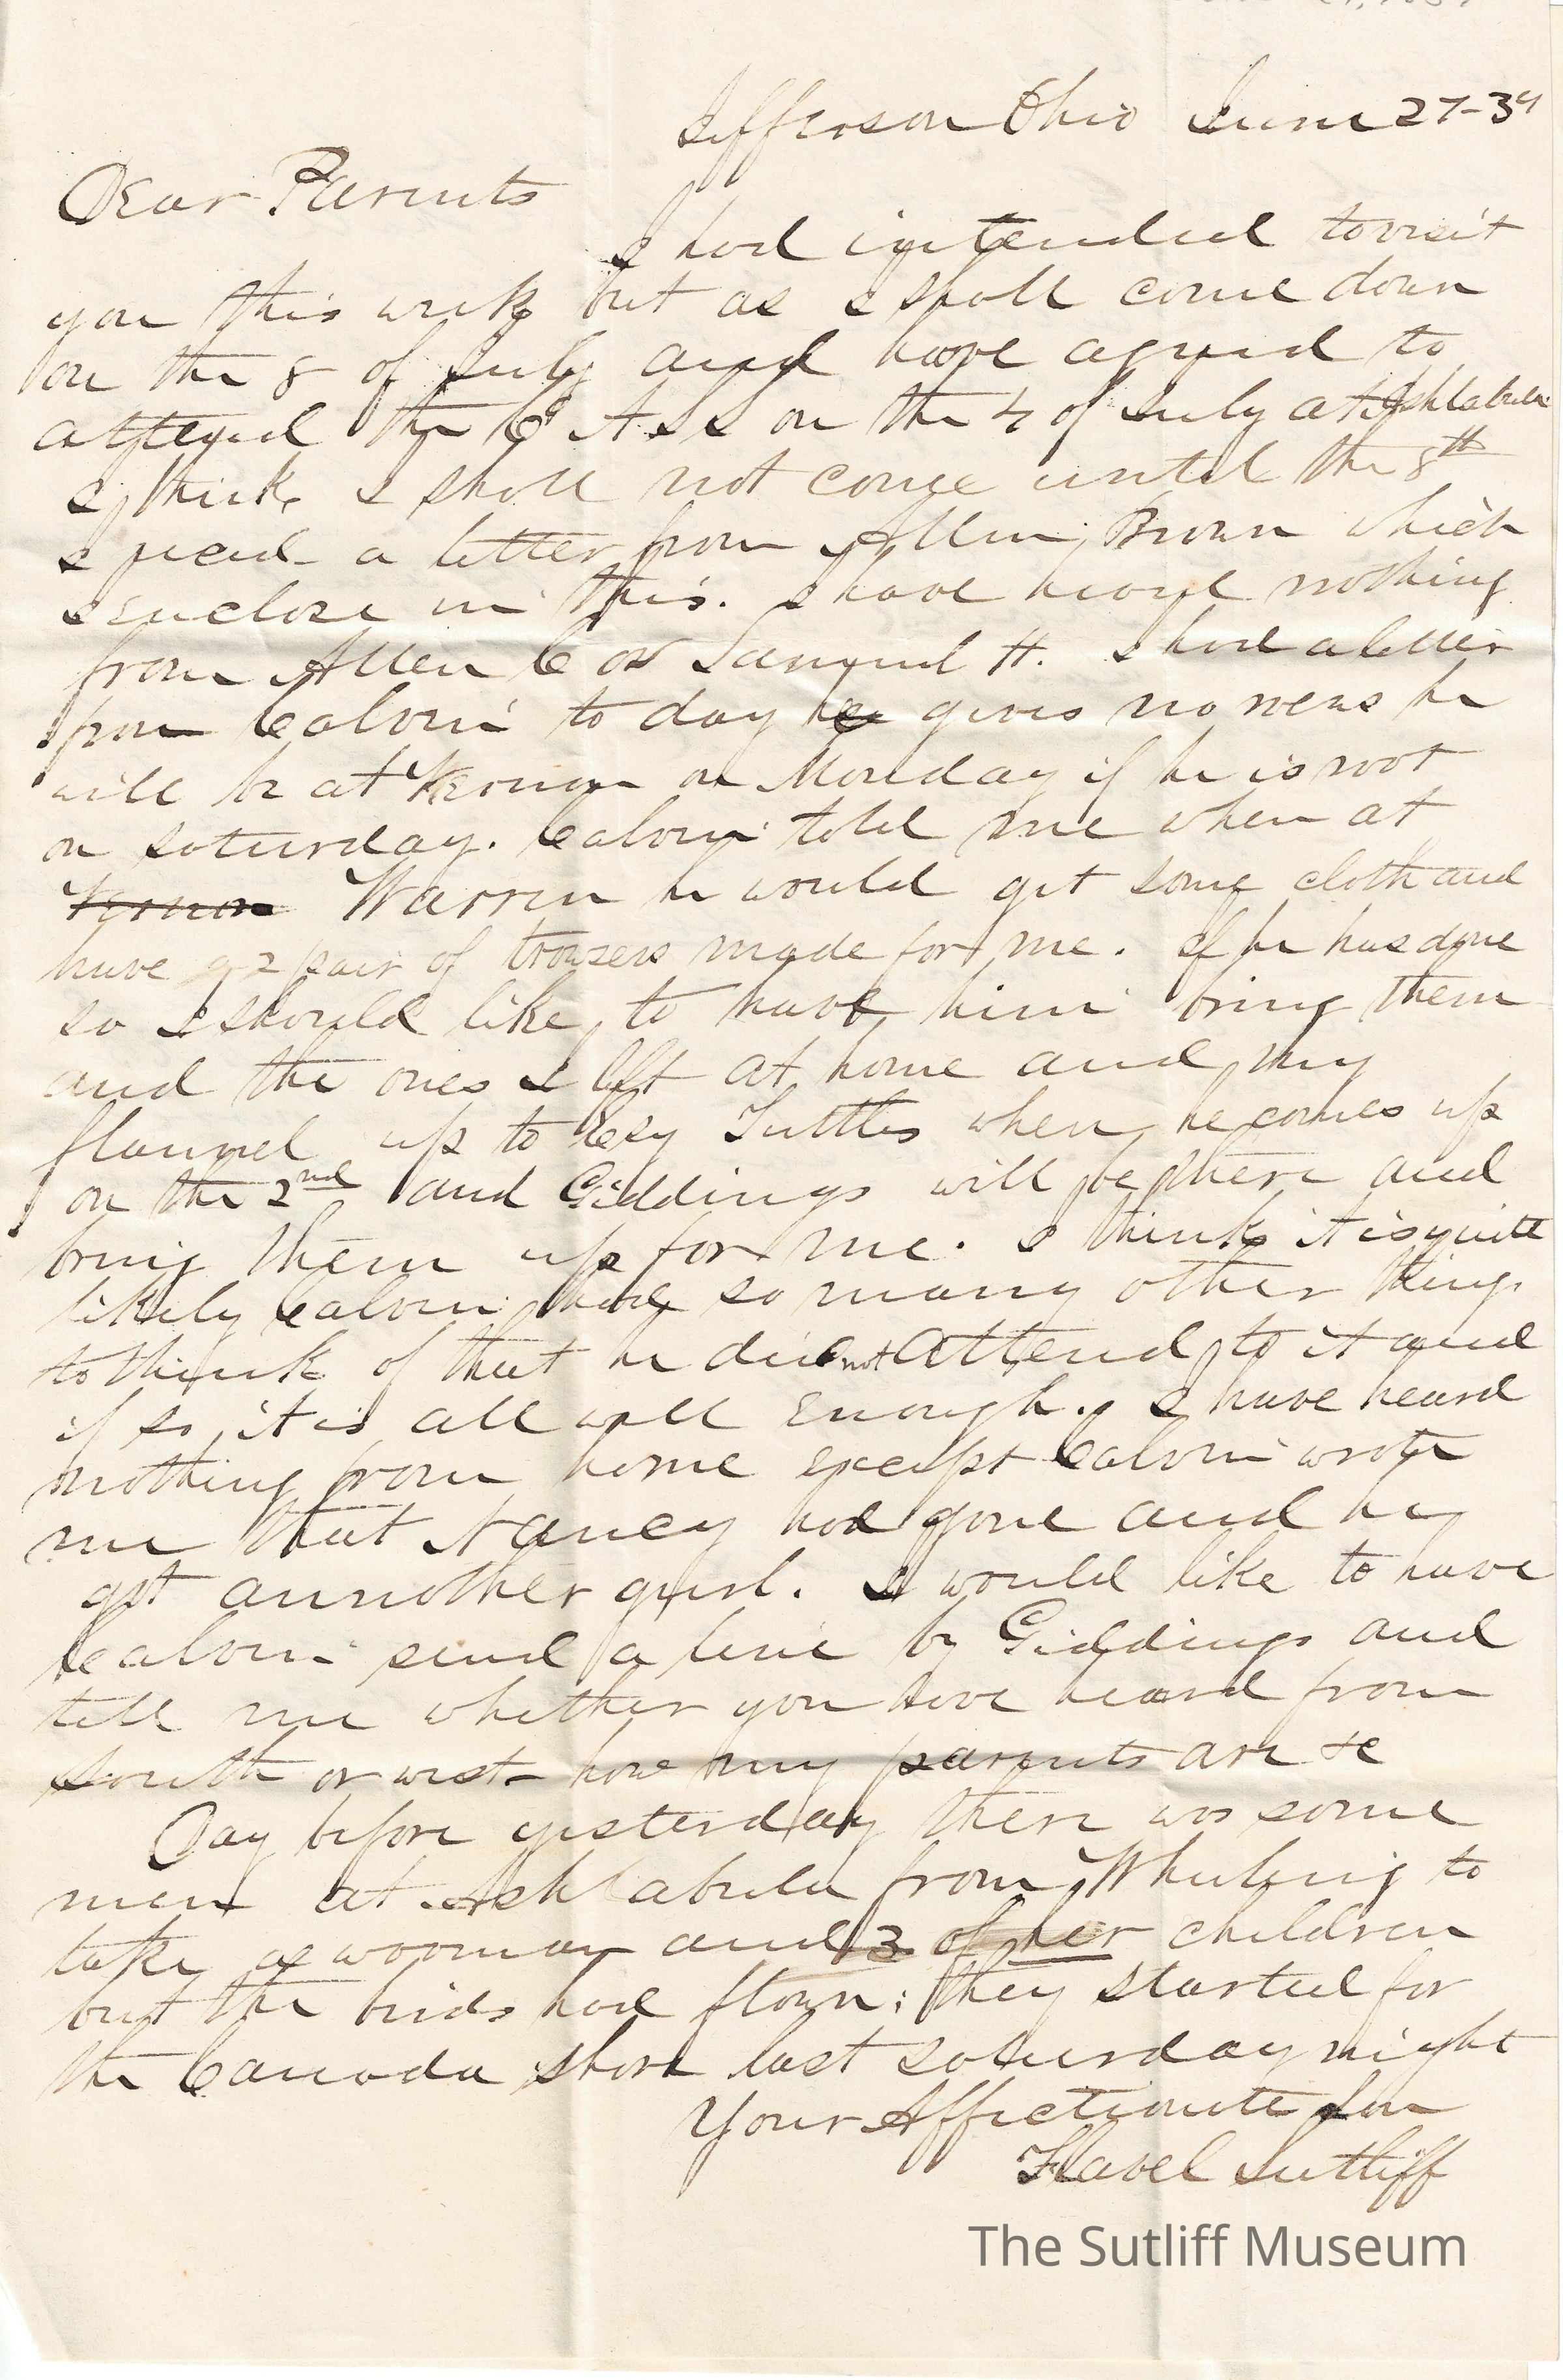 Jefferson Ohio June 27-39
Dear Parents
I had intended to visit
you this week but as I shall come down
on the 8 of July and have agreed to
attend the C A S S on the 4 of July at Ashtabula
I think I shall not come until the 8th
I recd a letter from Allen Brown which
I enclose in this. I have heard nothing
from Allen C or Samuel H. I had a letter
from Calvin to day he gives no news he
will be at Vernon on Monday if he is not
on saturday. Calvin told me when at
Vernon Warren he would get some cloth and
have a 2 pair of trowsers made for me. If he has done
so I should like to have him bring them
and the ones I left at home and my
flannel up to Tuttles when he comes up
on the 2nd and Giddings will be there and
bring them up for me. I think it is quite
likely Calvin had so many other things
to think of that he did not attend to it and
if so it is all well enough. I have heard
nothing from home except Calvin wrote
me that Nancy had gone and he
got annother gurl. I would like to have
Calvin send a line by Giddings and
tell me whether you have heard from
south or west- how my parents are &c
Day before yesterday there was some
men at Ashtabula from Wheeling to
take a wooman and 3 of her children
but the birds had flown; they started for
the Canada shore last saturday night
Your Affectionate Son
Flavel Sutliff
The Sutliff Museum